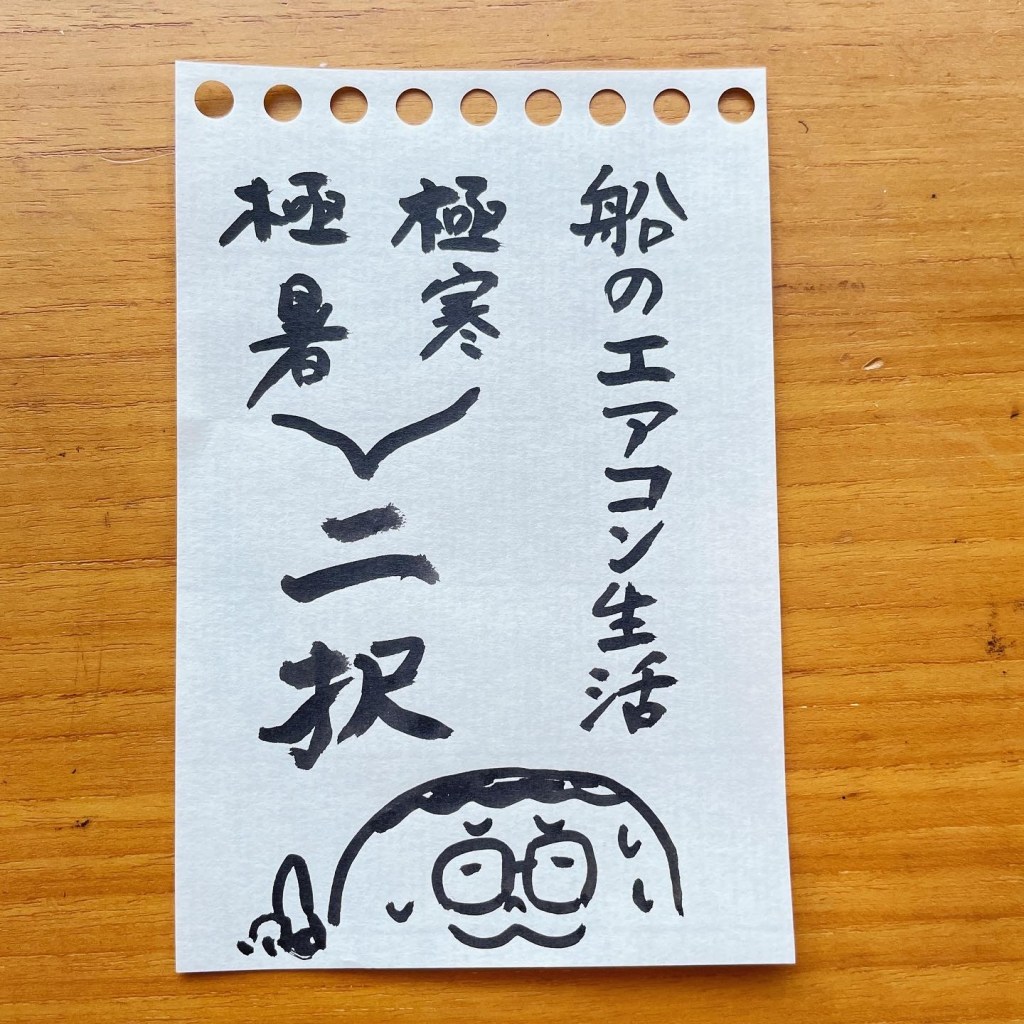 船のエアコン生活
極寒
極暑
二択